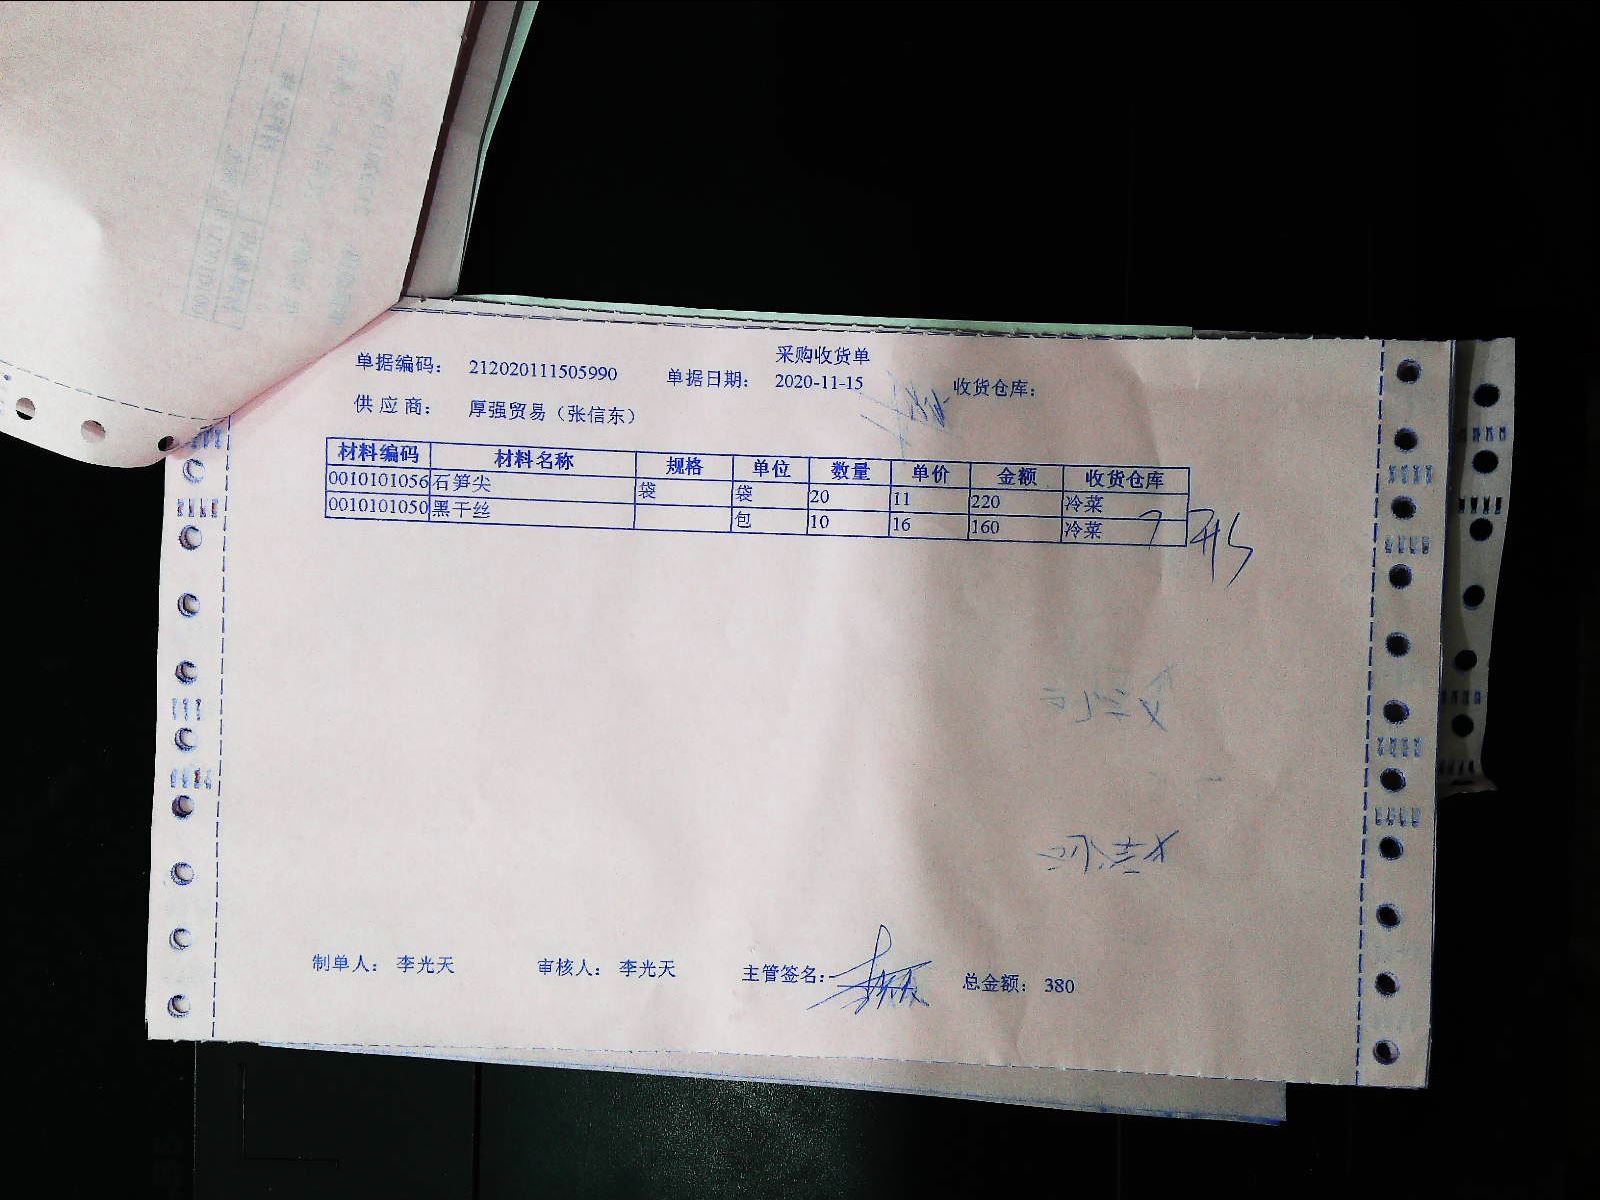 采购收货单
单据编码： 212020111505990 单据日期： 2020-11-15 收货仓库：
供 应 商： 厚强贸易（张信东）
材料编码 材料名称 规格 单位 数量 单价 金额 收货仓库
0010101056 石笋尖 袋 袋 20 11 220 冷菜
0010101050 黑干丝 包 10 16 160 冷菜
制单人： 李光天 审核人： 李光天 主管签名： 总金额： 380